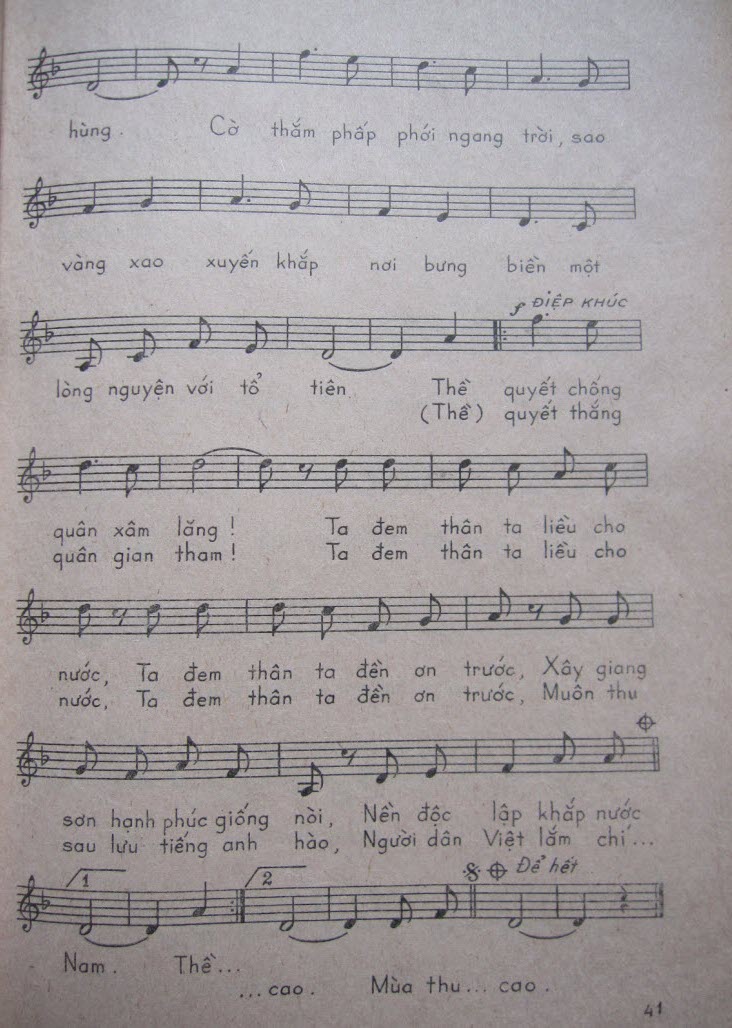 hùng. Cờ thắm phấp phới ngang trời, sao
vàng xao xuyến khắp nơi bưng biền một
f ĐIỆP KHÚC
lòng nguyện với tổ tiên Thề quyết chống
(Thề) quyết thắng
quân xâm lăng! Ta đem thân ta liều cho
quân gian tham! Ta đem thân ta liều cho
nước, Ta đem thân ta đền ơn trước, Xây giang
nước, Ta đem thân ta đền ơn trước, Muôn thu
sơn hạnh phúc giống nòi, Nền độc lập khắp nước
sau lưu tiếng anh hào, Người dân Việt lắm chí...
1 2 Để hết
Nam. Thề...
...cao. Mùa thu... cao.
41